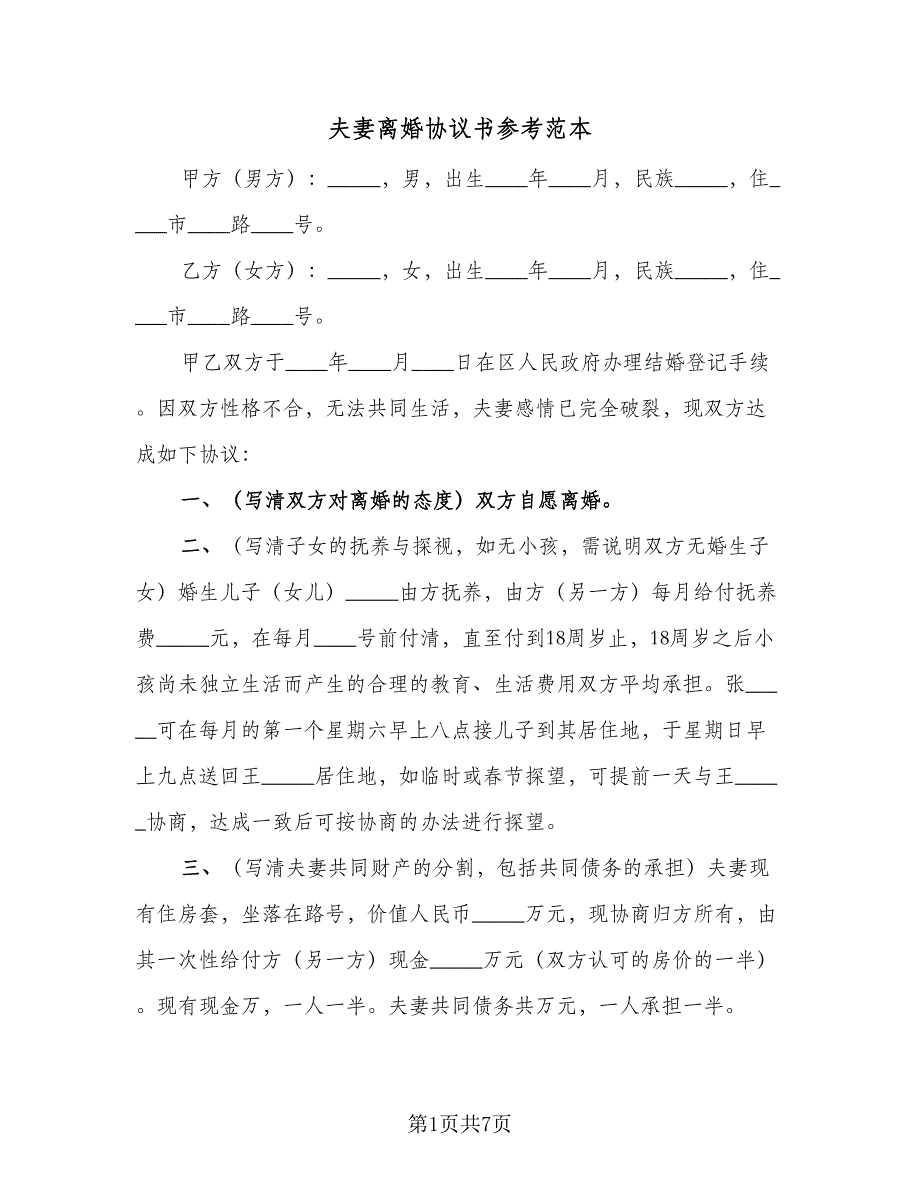 夫妻离婚协议书参考范本
甲方（男方）：_____，男，出生____年____月，民族_____，住_
___市____路____号。
乙方（女方）：_____，女，出生____年____月，民族_____，住_
___市____路____号。
甲乙双方于____年____月____日在区人民政府办理结婚登记手续
。因双方性格不合，无法共同生活，夫妻感情已完全破裂，现双方达
成如下协议：
一、（写清双方对离婚的态度）双方自愿离婚。
二、（写清子女的抚养与探视，如无小孩，需说明双方无婚生子
女）婚生儿子（女儿）_____由方抚养，由方（另一方）每月给付抚养
费_____元，在每月____号前付清，直至付到18周岁止，18周岁之后小
孩尚未独立生活而产生的合理的教育、生活费用双方平均承担。张___
__可在每月的第一个星期六早上八点接儿子到其居住地，于星期日早
上九点送回王_____居住地，如临时或春节探望，可提前一天与王____
_协商，达成一致后可按协商的办法进行探望。
三、（写清夫妻共同财产的分割，包括共同债务的承担）夫妻现
有住房套，坐落在路号，价值人民币_____万元，现协商归方所有，由
其一次性给付方（另一方）现金_____万元（双方认可的房价的一半）
。现有现金万，一人一半。夫妻共同债务共万元，一人承担一半。
第1页共7页